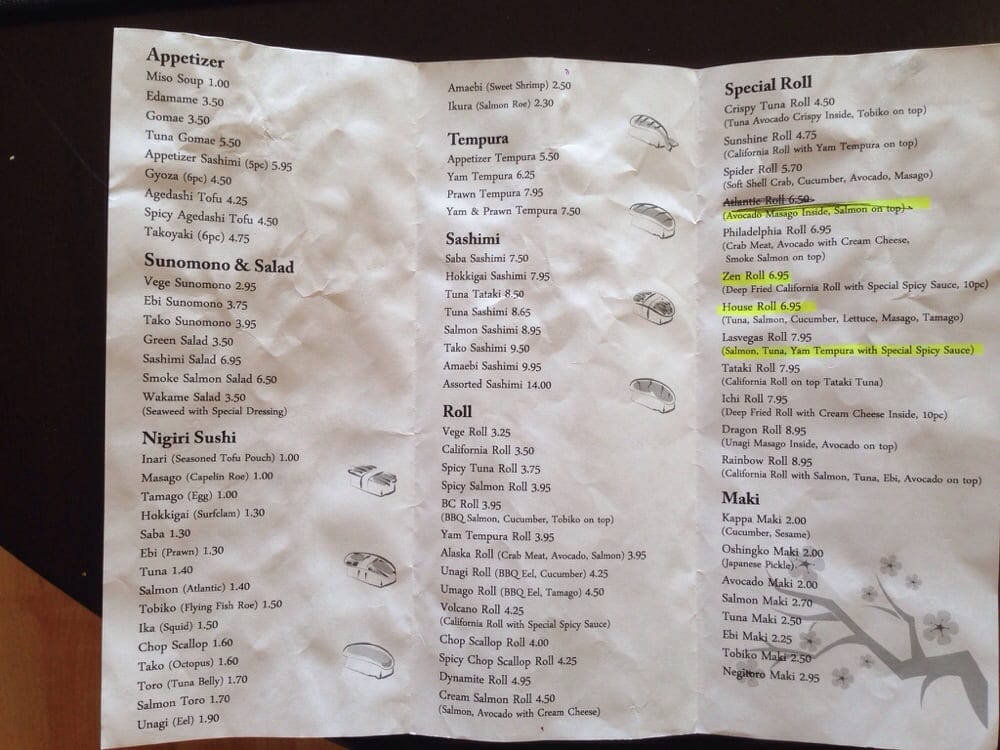 Appetizer
Miso Soup 1.00
Edamame 3.50
Gomae 3.50
Tuna Gomae 5.50
Appetizer Sashimi (5pc) 5.95
Gyoza (6pc) 4.50
Agedashi Tofu 4.25
Spicy Agedashi Tofu 4.50
Takoyaki (6pc) 4.75
Sunomono & Salad
Vege Sunomono 2.95
Ebi Sunomono 3.75
Tako Sunomono 3.95
Green Salad 3.50
Sashimi Salad 6.95
Smoke Salmon Salad 6.50
Wakame Salad 3.50
(Seaweed with Special Dressing)
Nigiri Sushi
Inari (Seasoned Tofu Pouch) 1.00
Masago (Capelin Roe) 1.00
Tamago (Egg) 1.00
Hokkigai (Surfclam) 1.30
Saba 1.30
Ebi (Prawn) 1.30
Tuna 1.40
Salmon (Atlantic) 1.40
Tobiko (Flying Fish Roe) 1.50
Ika (Squid) 1.50
Chop Scallop 1.60
Tako (Octopus) 1.60
Toro (Tuna Belly) 1.70
Salmon Toro 1.70
Unagi (Eel) 1.90
Amaebi (Sweet Shrimp) 2.50
Ikura (Salmon Roe) 2.30
Tempura
Appetizer Tempura 5.50
Yam Tempura 6.25
Prawn Tempura 7.95
Yam & Prawn Tempura 7.50
Sashimi
Saba Sashimi 7.50
Hokkigai Sashimi 7.95
Tuna Tataki 8.50
Tuna Sashimi 8.65
Salmon Sashimi 8.95
Tako Sashimi 9.50
Amaebi Sashimi 9.95
Assorted Sashimi 14.00
Roll
Vege Roll 3.25
California Roll 3.50
Spicy Tuna Roll 3.75
Spicy Salmon Roll 3.95
BC Roll 3.95
(BBQ Salmon, Cucumber, Tobiko on top)
Yam Tempura Roll 3.95
Alaska Roll (Crab Meat, Avocado, Salmon) 3.95
Unagi Roll (BBQ Eel, Cucumber) 4.25
Umago Roll (BBQ Eel, Tamago) 4.50
Volcano Roll 4.25
(California Roll with Special Spicy Sauce)
Chop Scallop Roll 4.00
Spicy Chop Scallop Roll 4.25
Dynamite Roll 4.95
Cream Salmon Roll 4.50
(Salmon, Avocado with Cream Cheese)
Special Roll
Crispy Tuna Roll 4.50
(Tuna Avocado Crispy Inside, Tobiko on top)
Sunshine Roll 4.75
(California Roll with Yam Tempura on top)
Spider Roll 5.70
(Soft Shell Crab, Cucumber, Avocado, Masago)
Atlantic Roll 6.50
(Avocado Masago Inside, Salmon on top)
Philadelphia Roll 6.95
(Crab Meat, Avocado with Cream Cheese,
Smoke Salmon on top)
Zen Roll 6.95
(Deep Fried California Roll with Special Spicy Sauce, 10pc)
House Roll 6.95
(Tuna, Salmon, Cucumber, Lettuce, Masago, Tamago)
Lasvegas Roll 7.95
(Salmon, Tuna, Yam Tempura with Special Spicy Sauce)
Tataki Roll 7.95
(California Roll on top Tataki Tuna)
Ichi Roll 7.95
(Deep Fried Roll with Cream Cheese Inside, 10pc)
Dragon Roll 8.95
(Unagi Masago Inside, Avocado on top)
Rainbow Roll 8.95
(California Roll with Salmon, Tuna, Ebi, Avocado on top)
Maki
Kappa Maki 2.00
(Cucumber, Sesame)
Oshingko Maki 2.00
(Japanese Pickle)
Avocado Maki 2.00
Salmon Maki 2.70
Tuna Maki 2.50
Ebi Maki 2.25
Tobiko Maki 2.50
Negitoro Maki 2.95